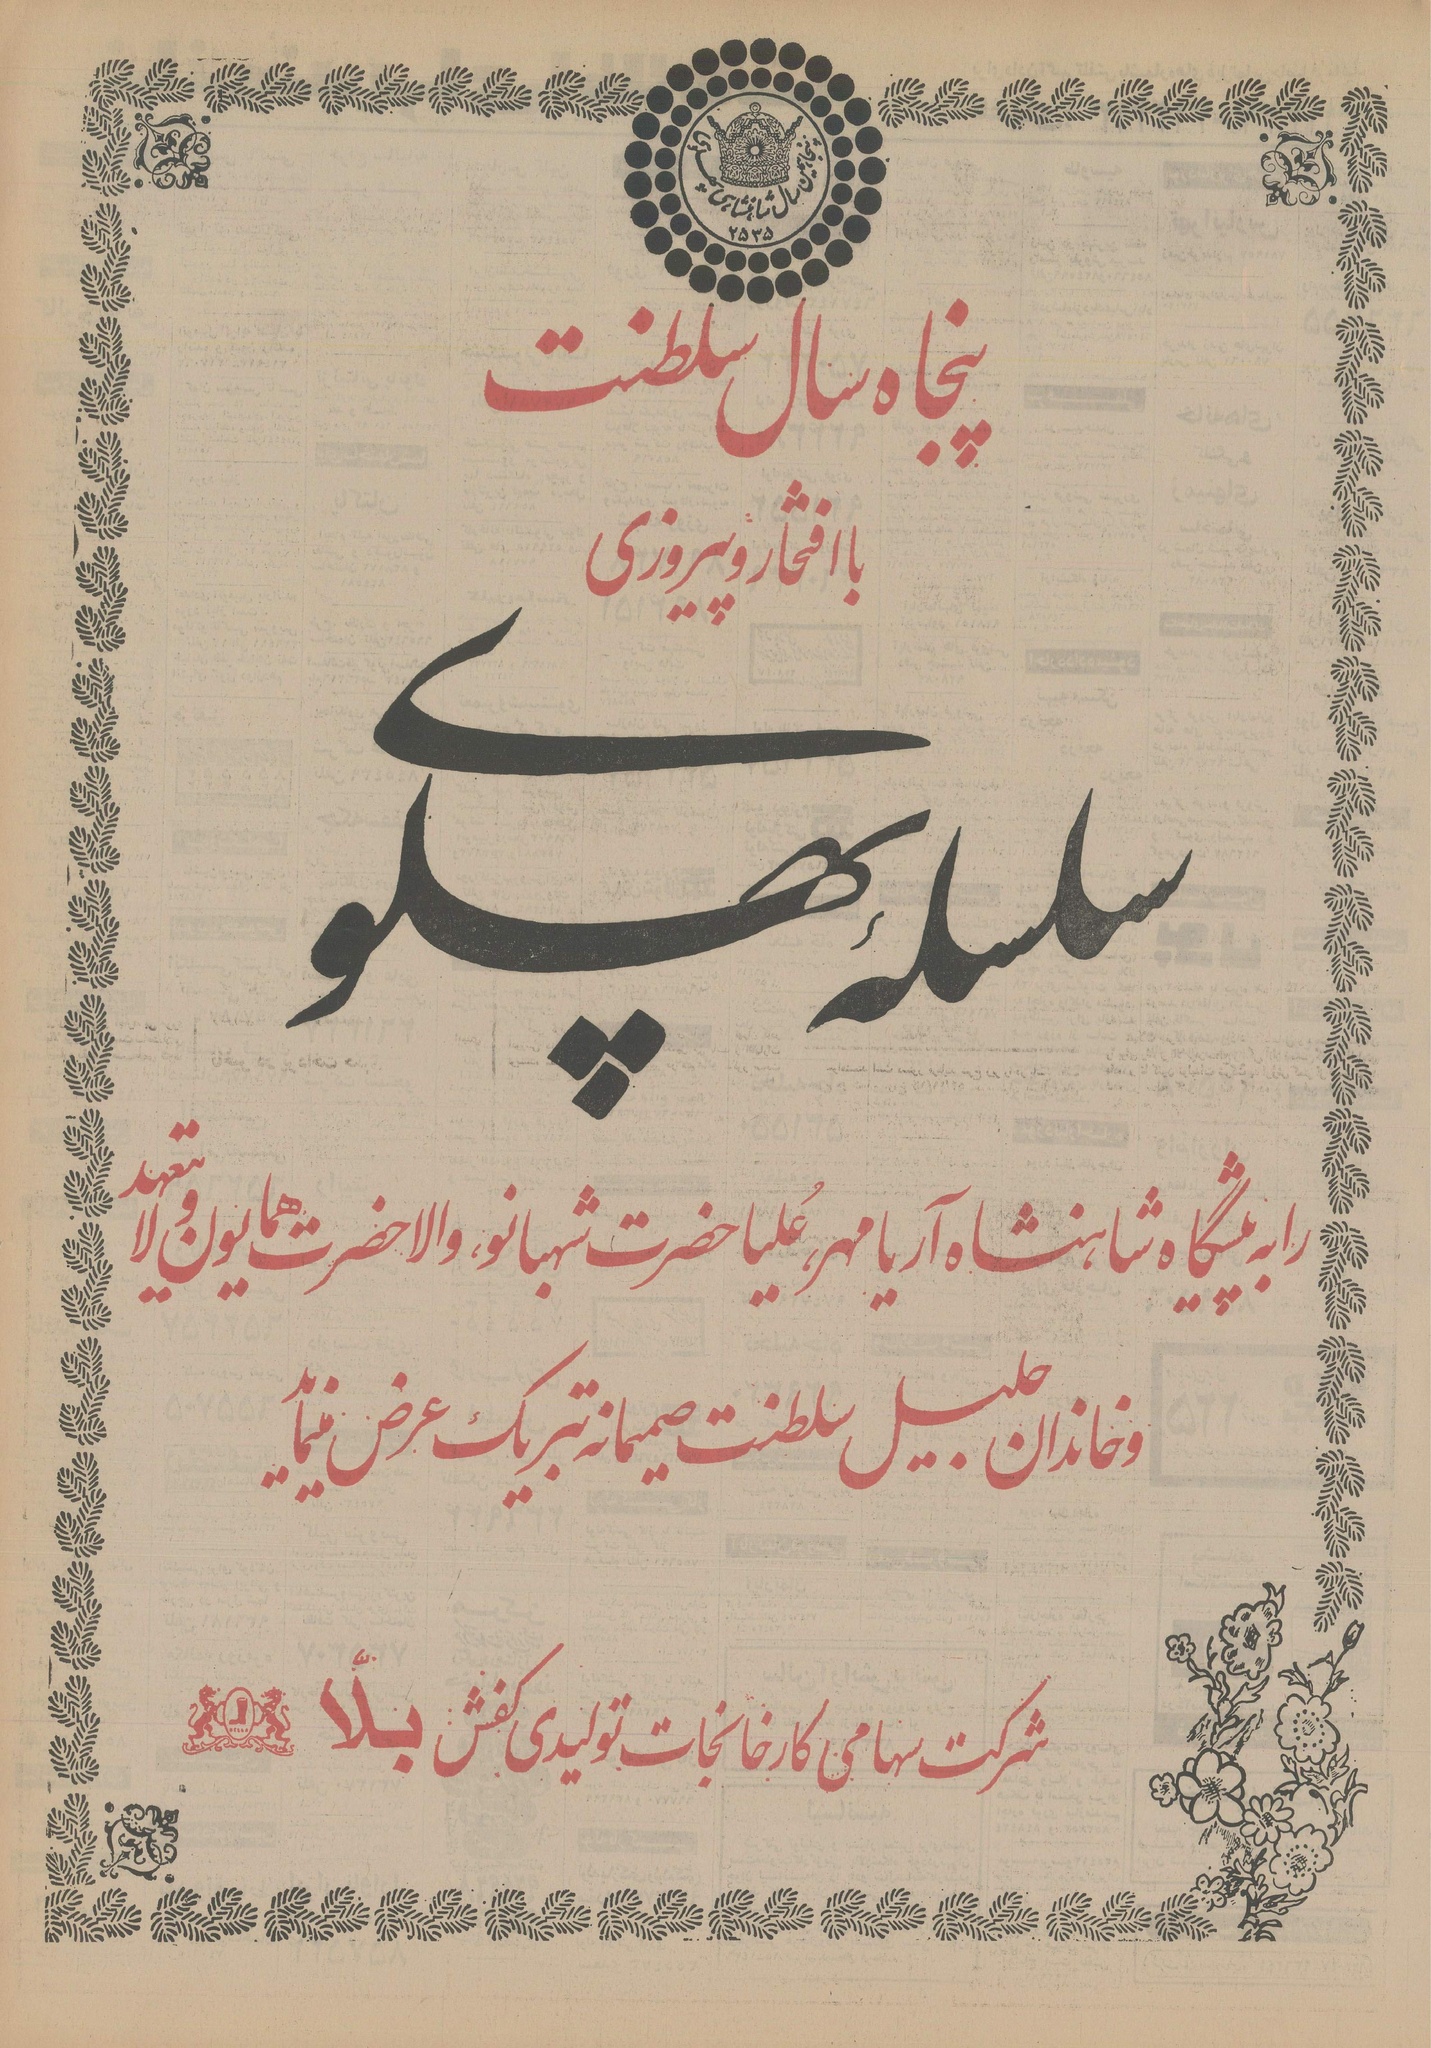 پنجاهمین سال شاهنشاهی پهلوی
۲۵۳۵
پنجاه سال سلطنت
با افتخار و پیروزی
سلسلهٔ پهلوی
را به پیشگاه شاهنشاه آریامهر، عُلیاحضرت شهبانو، والاحضرت همایون ولایتعهد
و خاندان جلیل سلطنت صمیمانه تبریک عرض مینماید
شرکت سهامی کارخانجات تولیدی کفش بلّا
BELLA